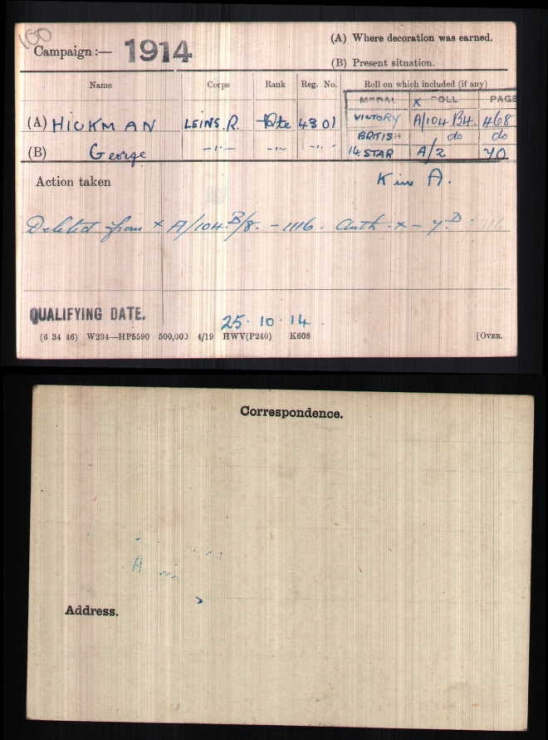 Campaign :— 1914
(A) Where decoration was earned.
(B) Present situation.
Name Corps Rank Reg. No. Roll on which included (if any)
MEDAL ROLL PAGE
(A) HICKMAN LEINS.R. Pte 4301 VICTORY A/104 B4. 468
BRITISH do do
(B) George —"— —"— —"— 14 STAR A/2 70
Action taken K in A.
Deleted from × A/104 B/8. – 1116. Auth. × –
QUALIFYING DATE. 25. 10. 14.
(6 34 46) W234—HP5590 500,000 4/19 HWV(P240) K608 [OVER.
Correspondence.
A
Address.